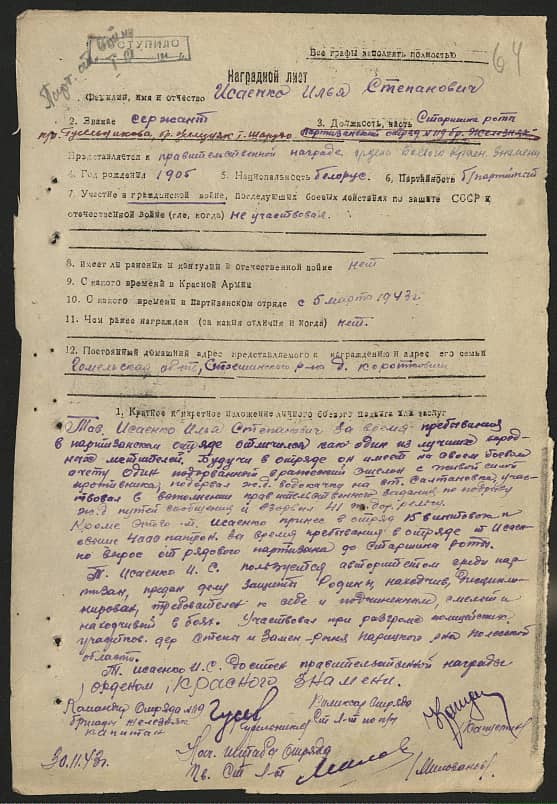 ПОСТУПИЛО
64
Все графы заполнять полностью
Наградной лист
1. Фамилия, имя и отчество Исаенко Илья Степанович
2. Звание сержант 3. Должность, часть Старшина роты
Партизанский отряд бр. Железняк
Представляется к правительственной награде ордена Боевого Красн. Знамени
4. Год рождения 1905 5. Национальность белорус. 6. Партийность б/партийный
7. Участие в гражданской войне, последующих боевых действиях по защите СССР и
отечественной войне (где, когда) не участвовал.
8. Имеет ли ранения и контузии в отечественной войне нет
9. С какого времени в Красной Армии
10. С какого времени в Партизанском отряде с 5 марта 1943 г.
11. Чем ранее награжден (за какия отличия и когда) нет.
12. Постоянный домашний адрес представляемого к награждению и адрес его семьи
Гомельская обл., р-на д. Короткович
1. Краткое конкретное изложение личного боевого подвига или заслуг
Тов. Исаенко Илья Степанович за время пребывания
в партизанском отряде отличился как один из лучших народ-
ных мстителей. Будучи в отряде он имеет на своем боевом
счету один подорванный вражеский эшелон с живой силой
противника, подорвал ж.д. водокачку на ст. Салтановка, учас-
твовал в выполнении правительственного задания по подрыву
ж.д путей сообщения и взорвал 41 рельсу.
Кроме этого т. Исаенко принес в отряд 15 винтовок и
свыше 4000 патрон. За время пребывания в отряде т Исаен-
ко вырос от рядового партизана до Старшины роты.
Т. Исаенко И. С. пользуется авторитетом среди пар-
тизан, предан делу защиты Родины, находчив, дисципли-
нирован, требователен к себе и подчиненным, смелый и
находчивый в боях. Участвовал при разгроме полицейских
участков. дер Стена и р-на Полесской
области.
Т. Исаенко И.С. Достоин правительственной награды
орденом "Красного Знамени.
Командир Отряда
бригады Железняк
капитан
Комиссар Отряда
Ст л-т
Нач. Штаба Отряда
Ст л-т
(Милованов)
30.11.43г.